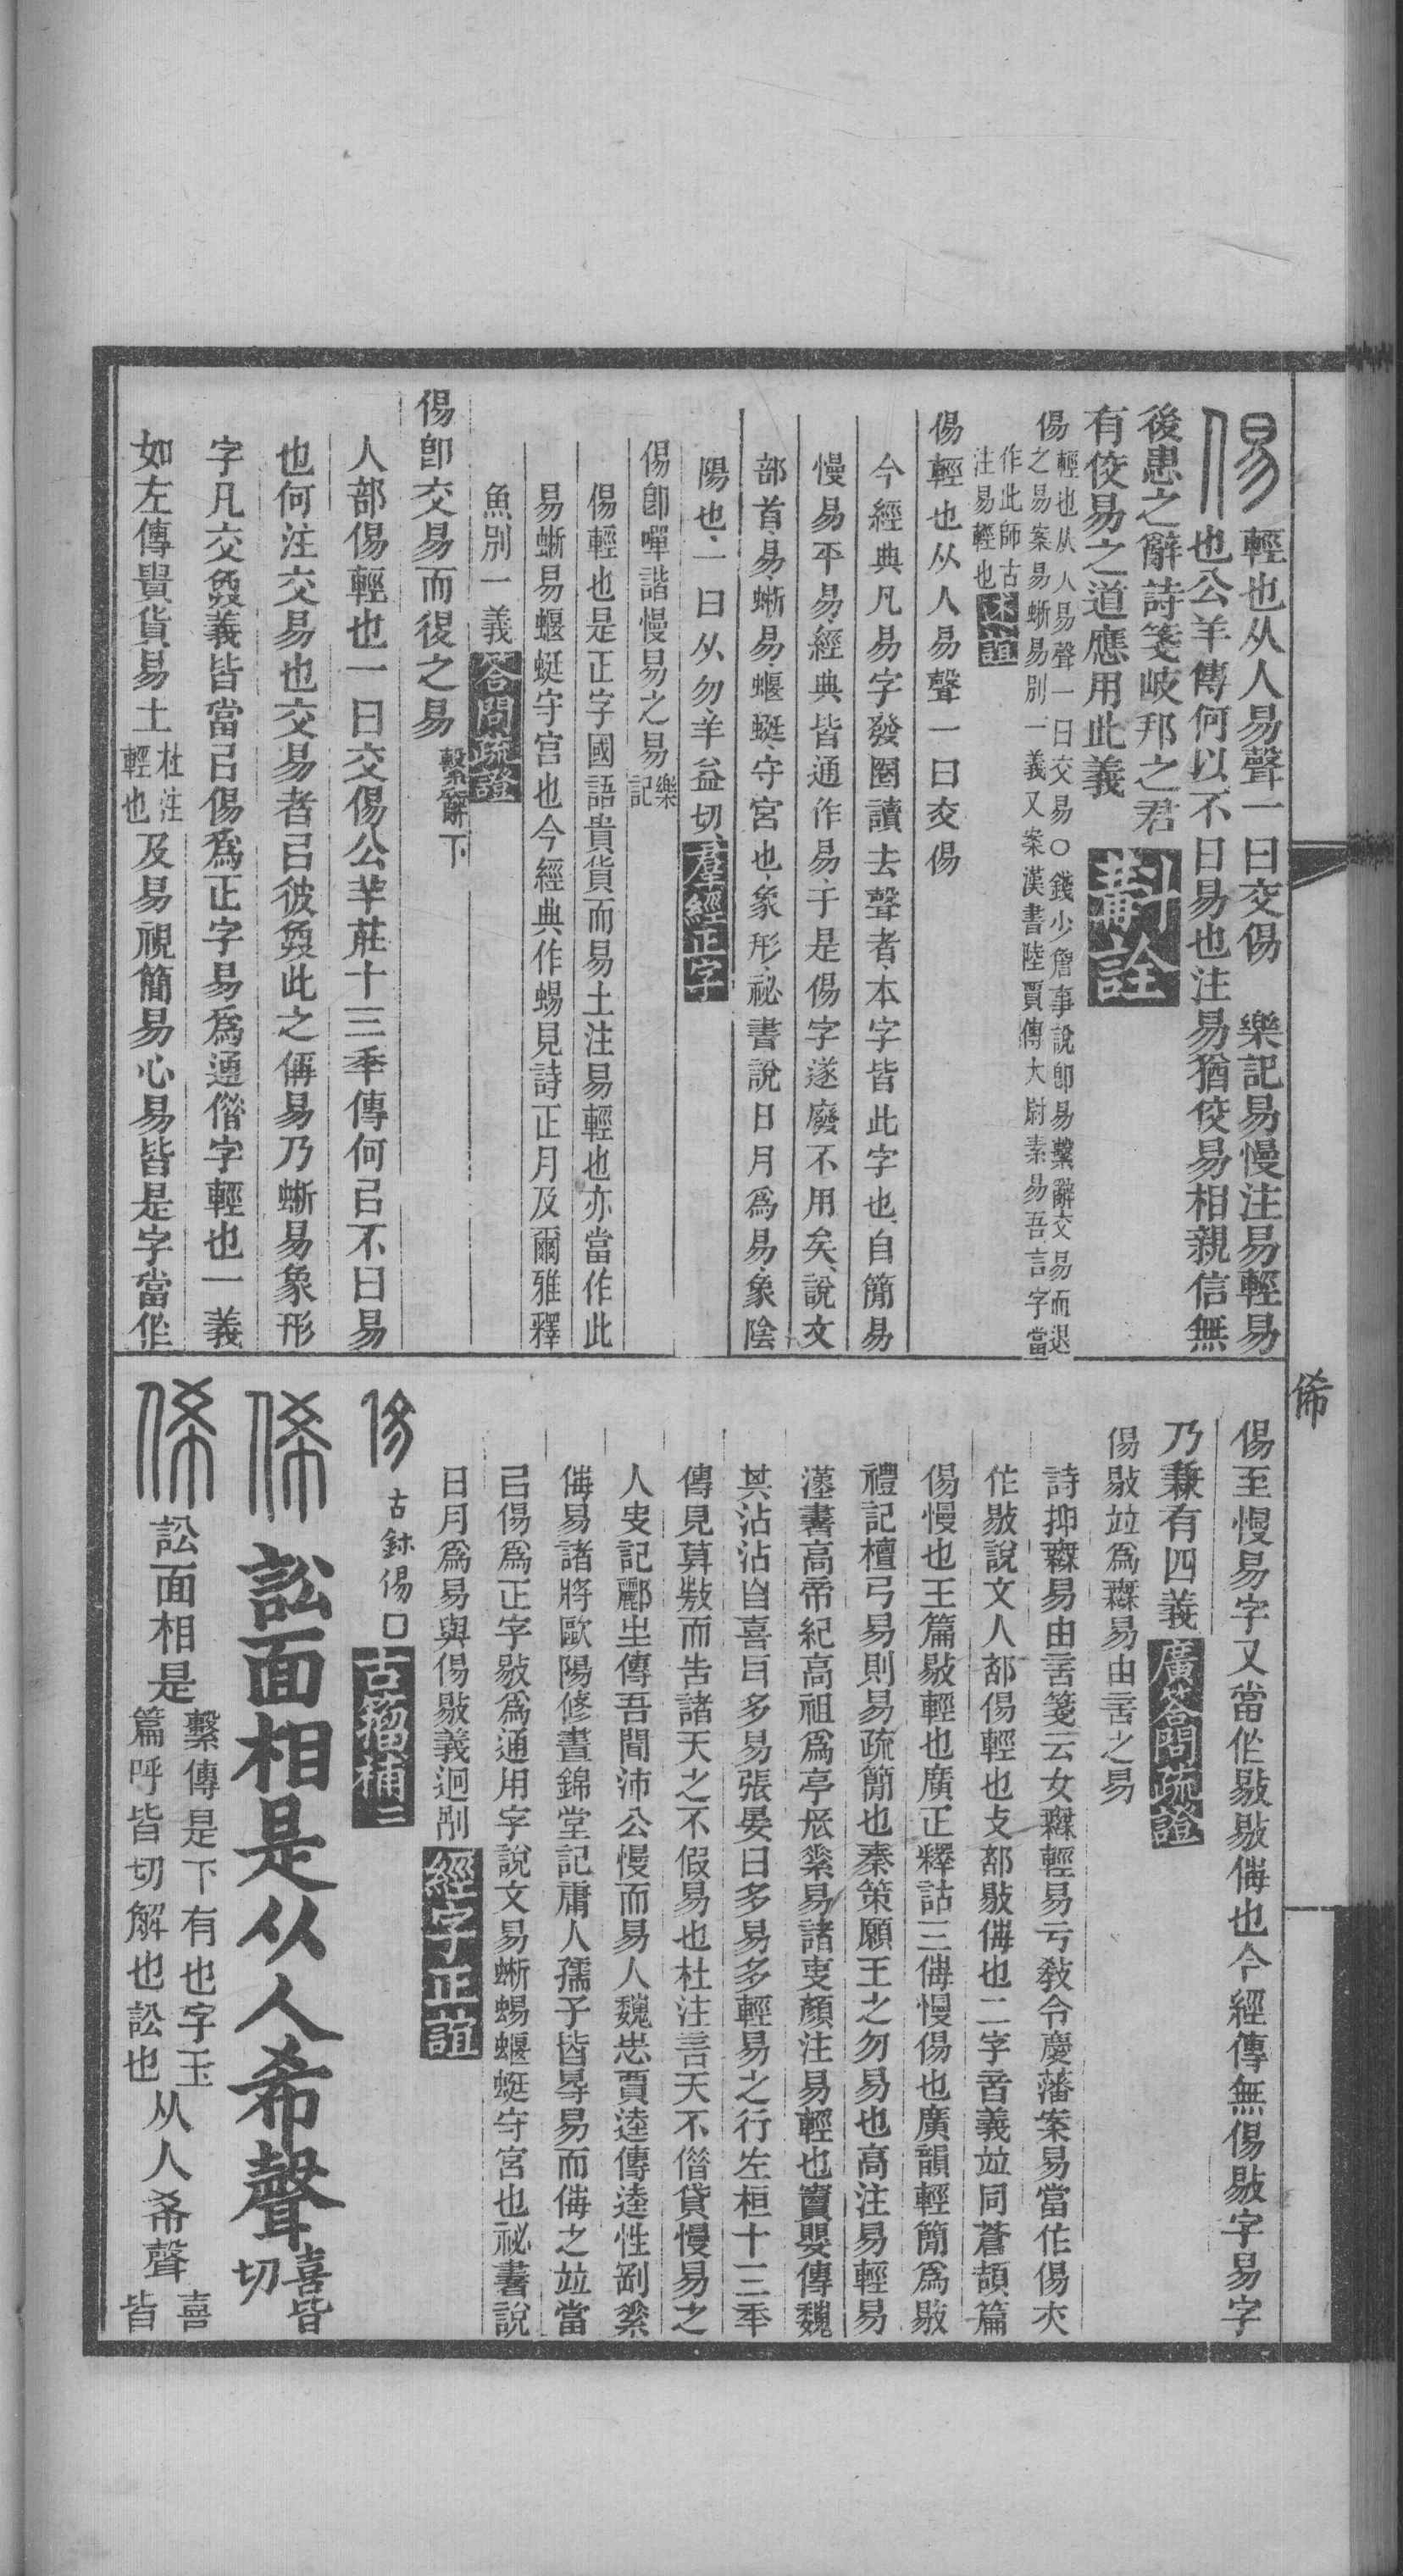 輕也从人易聲一曰交傷　樂記易慢注易輕易
也公羊傳何以不日易也注易猶佼易相親信無
後患之辭詩箋岐邦之君
有佼易之道應用此義 斠詮
傷 輕也从人易聲一曰交易○錢少詹事說卽易繫辭交易而退
之易案易蜥易別一義又案漢書陸賈傳大尉素易吾言字當
作此師古
注易輕也
傷輕也从人易聲一曰交傷
今經典凡易字發圈讀去聲者本字皆此字也自簡易
慢易平易經典皆通作易于是傷字遂廢不用矣說文
部首易蜥易蝘蜓守宮也象形祕書說日月爲易象陰
陽也一曰从勿羊益切 羣經正字
傷卽嘽諧慢易之易 樂記
傷輕也是正字國語貴貨而易土注易輕也亦當作此
易蜥易蝘蜓守宮也今經典作蜴見詩正月及爾雅釋
魚別一義 答問疏證
傷卽交易而後之易 繫辭下
人部傷輕也一曰交傷公羊莊十三秊傳何㠯不日易
也何注交易也交易者㠯彼奐此之偁易乃蜥易象形
字凡交奐義皆當㠯傷爲正字易爲通偺字輕也一義
如左傳貴貨易土 杜注
輕也 及易視簡易心易皆是字當㑅
俙
傷至慢易字又當㑅敡敡侮也今經傳無傷敡字易字
乃兼有四義 廣答問疏證
傷敡竝爲無易由言之易
詩抑無易由言箋云女無輕易亏敎令慶藩案易當㑅傷亦
㑅敡說文人部傷輕也攴部敡侮也二字音義竝同蒼頡篇
傷慢也玉篇敡輕也廣疋釋詁三侮慢傷也廣韻輕簡爲敡
禮記檀弓易則易疏簡也秦策願王之勿易也高注易輕易
漢書高帝紀高祖爲亭長素易諸吏顏注易輕也竇嬰傳魏
其沾沾自喜耳多易張晏曰多易多輕易之行左桓十三秊
傳見莫敖而告諸天之不假易也杜注言天不偺貸慢易之
人史記酈生傳吾聞沛公慢而易人魏志賈逵傳逵性剛素
侮易諸將歐陽修晝錦堂記庸人孺子皆得易而侮之竝當
㠯傷爲正字敡爲通用字說文易蜥蜴蝘蜓守宮也祕書說
日月爲易與傷敡義迥別 經字正誼
古鉨傷口 古籀補二
訟面相是从人希聲 喜皆
切
訟面相是 繫傳是下有也字玉
篇呼皆切解也訟也 从人希聲 喜
皆